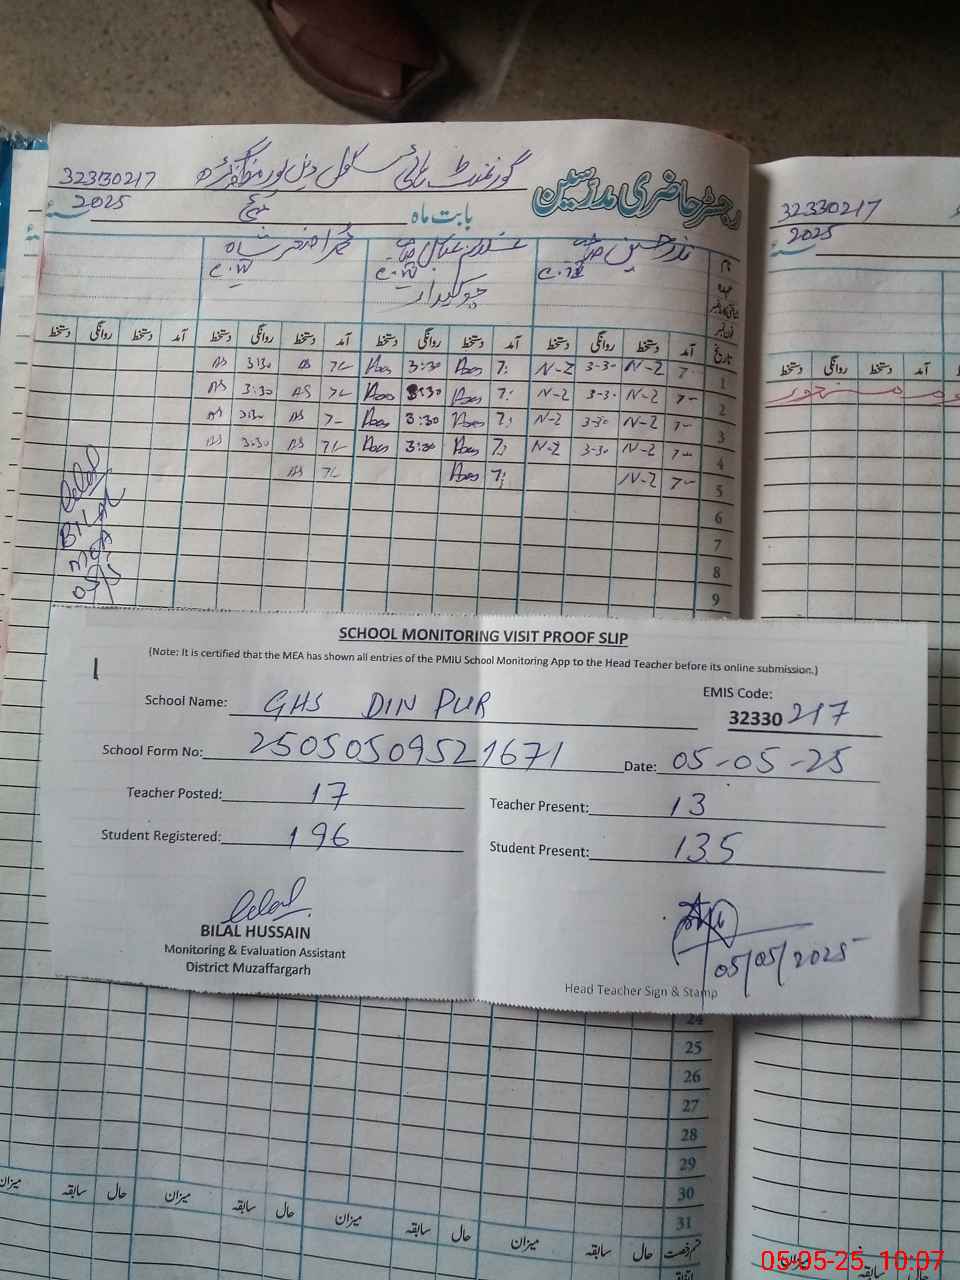 32330217 گورنمنٹ ہائی سکول دین پور مظفرگڑھ
رجسٹر حاضری مدرسین
بابت ماہ مئی 2025
32330217
2025
نذر حسین صاحب
چوکیدار
نام
عہدہ
تاریخ آمد دستخط روانگی دستخط آمد دستخط روانگی دستخط آمد دستخط روانگی دستخط آمد دستخط روانگی دستخط
آمد دستخط روانگی دستخط
1 7- N-Z 3-30 N-Z 7: 3:30 7L AS 3:30 AS
2 7- N-Z 3-30 N-Z 7: 3:30 7L AS 3:30 AS
3 7- N-Z 3-30 N-Z 7: 3:30 7L AS 3:30 AS
4 7- N-Z 3-30 N-Z 7: 3:30 7L AS 3:30 AS
5 7- N-Z 7: 7L AS
6
7
8
9
Bilal
BILAL
MEA
05/5
SCHOOL MONITORING VISIT PROOF SLIP
(Note: It is certified that the MEA has shown all entries of the PMIU School Monitoring App to the Head Teacher before its online submission.)
School Name: GHS DIN PUR
EMIS Code:
32330 217
School Form No: 25050509521671
Date: 05-05-25
Teacher Posted: 17
Teacher Present: 13
Student Registered: 196
Student Present: 135
Bilal
BILAL HUSSAIN
Monitoring & Evaluation Assistant
District Muzaffargarh
05/05/2025
Head Teacher Sign & Stamp
24
25
26
27
28
29
30
31
قسم رخصت حال سابقہ میزان حال سابقہ میزان حال سابقہ میزان حال سابقہ میزان
میزان سابقہ حال
05-05-25 10:07